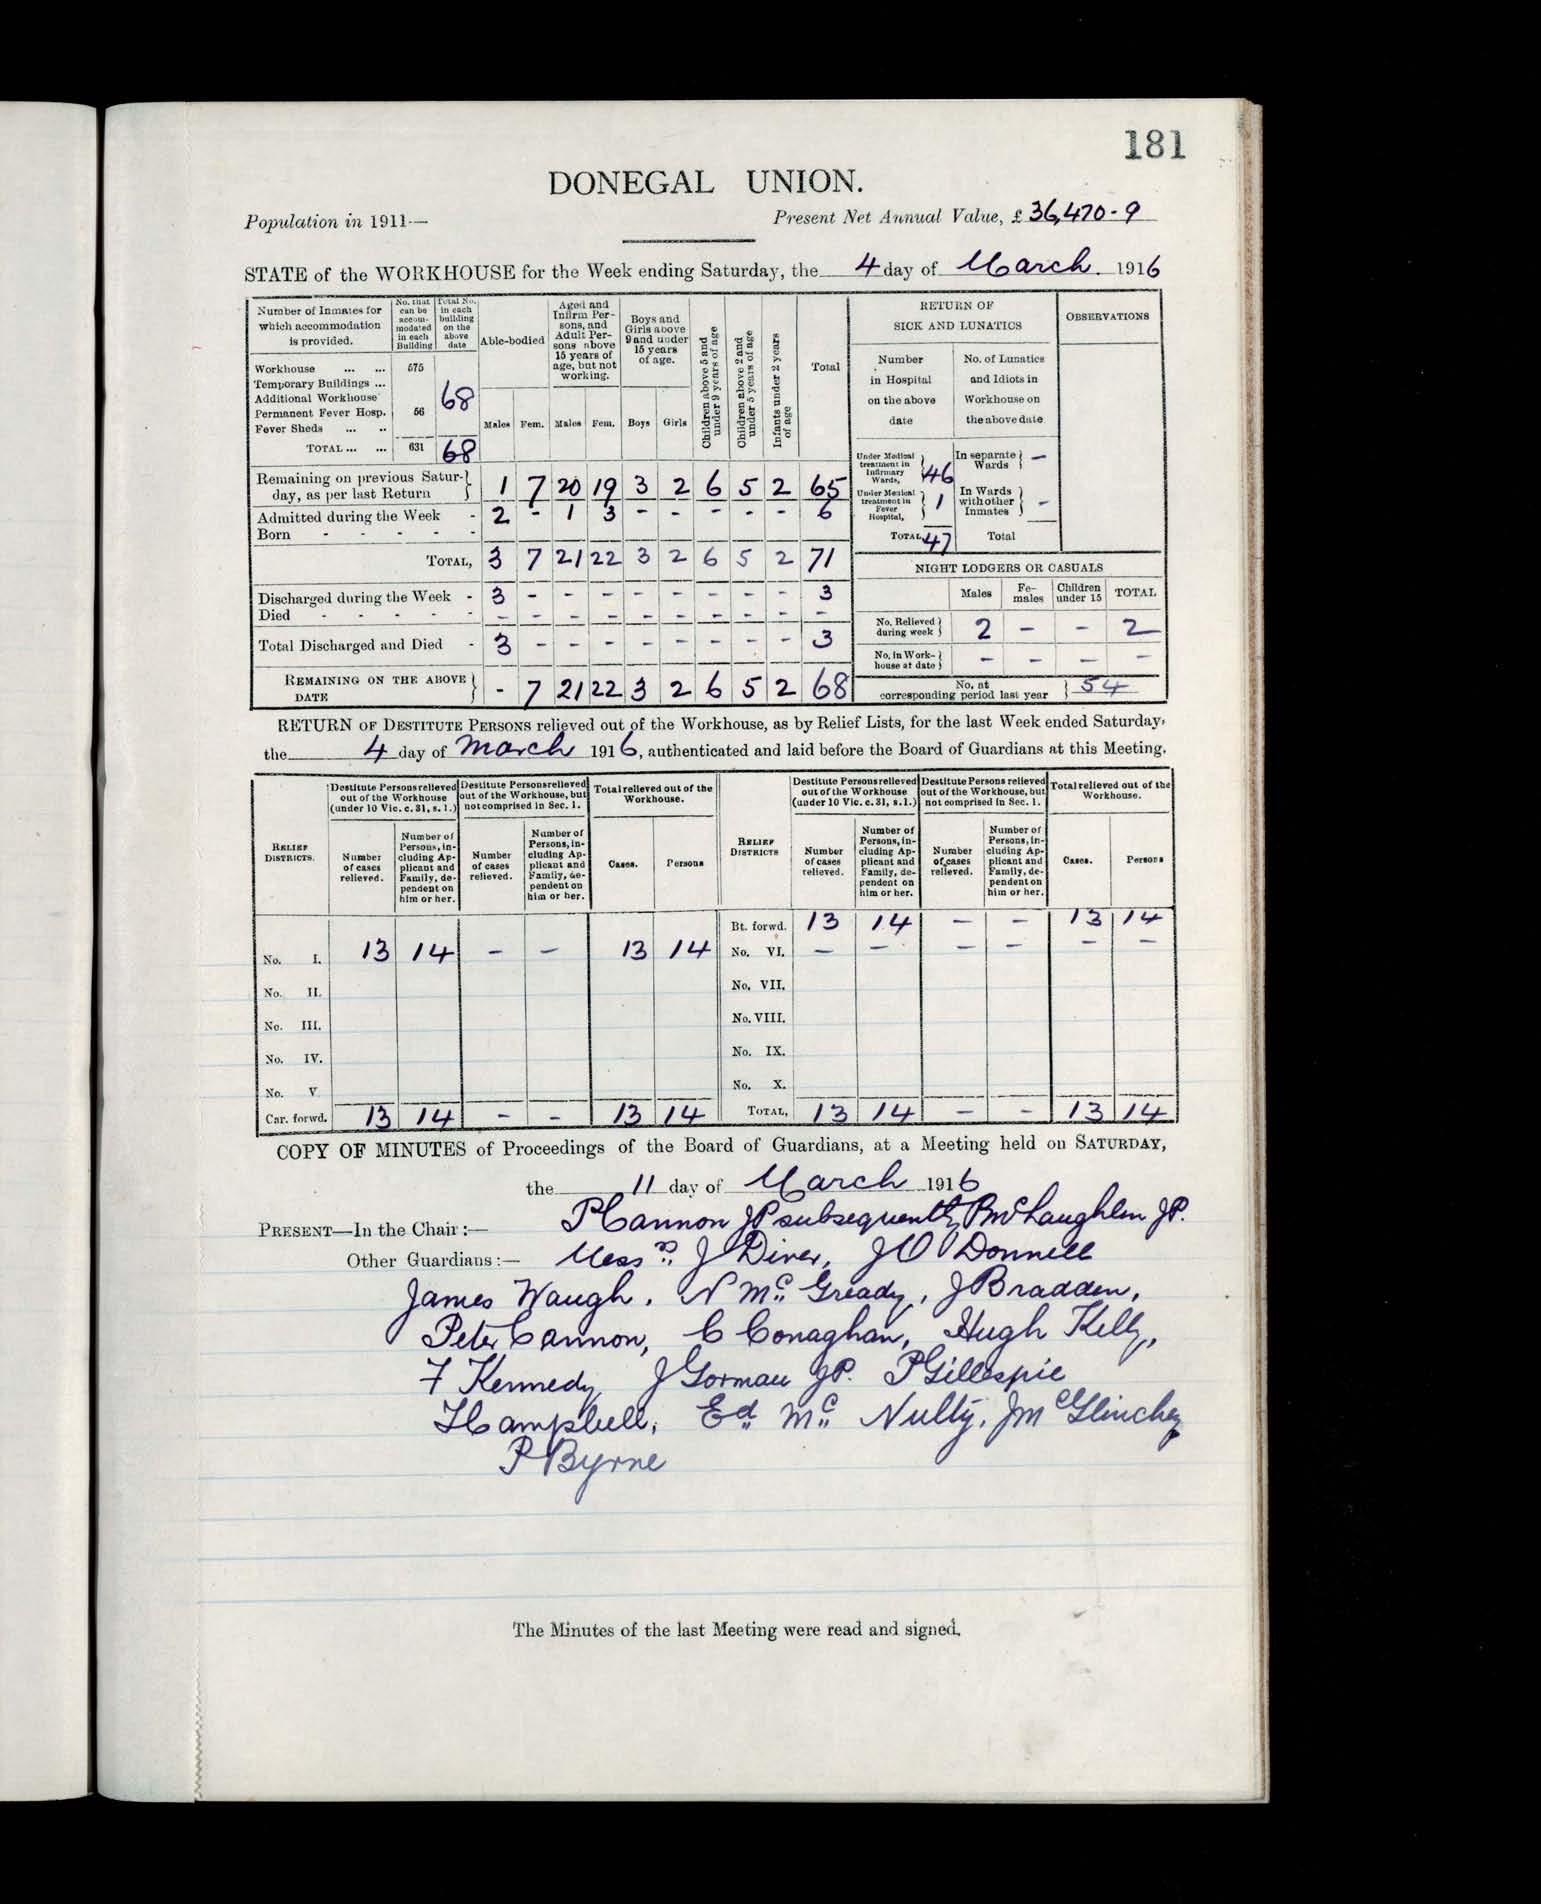 181
DONEGAL UNION.
Population in 1911.— Present Net Annual Value, £ 36,470-9
STATE of the WORKHOUSE for the Week ending Saturday, the 4 day of March. 1916
Number of Inmates for which accommodation is provided. No. that can be accommodated in each Building Total No. in each building on the above date Able-bodied Aged and Infirm Persons, and Adult Persons above 15 years of age, but not working. Boys and Girls above 9 and under 15 years of age. Children above 5 and under 9 years of age Children above 2 and under 5 years of age Infants under 2 years of age Total
Males Fem. Males Fem. Boys Girls
Workhouse ... ... 575
Temporary Buildings ...
Additional Workhouse 68
Permanent Fever Hosp. 56
Fever Sheds ... ..
TOTAL ... ... 631 68
Remaining on previous Saturday, as per last Return 1 7 20 19 3 2 6 5 2 65
Admitted during the Week - 2 - 1 3 - - - - - 6
Born - - - - -
TOTAL, 3 7 21 22 3 2 6 5 2 71
Discharged during the Week - 3 - - - - - - - - 3
Died - - - - - - - - - - - - - -
Total Discharged and Died - 3 - - - - - - - - 3
REMAINING ON THE ABOVE DATE - 7 21 22 3 2 6 5 2 68
RETURN OF SICK AND LUNATICS
OBSERVATIONS
Number in Hospital on the above date
No. of Lunatics and Idiots in Workhouse on the above date
Under Medical treatment in Infirmary Wards, 46 In separate Wards -
Under Medical treatment in Fever Hospital, 1 In Wards with other Inmates -
TOTAL, 47 Total
NIGHT LODGERS OR CASUALS
Males Females Children under 15 TOTAL
No. Relieved during week 2 - - 2
No. in Workhouse at date - - - -
No. at corresponding period last year 54
RETURN OF DESTITUTE PERSONS relieved out of the Workhouse, as by Relief Lists, for the last Week ended Saturday,
the 4 day of March 1916, authenticated and laid before the Board of Guardians at this Meeting.
RELIEF DISTRICTS. Destitute Persons relieved out of the Workhouse (under 10 Vic. c. 31, s. 1.) Destitute Persons relieved out of the Workhouse, but not comprised in Sec. 1. Total relieved out of the Workhouse.
Number of cases relieved. Number of Persons, including Applicant and Family, dependent on him or her. Number of cases relieved. Number of Persons, including Applicant and Family, dependent on him or her. Cases. Persons
No. I. 13 14 - - 13 14
No. II.
No. III.
No. IV.
No. V
Car. forwd. 13 14 - - 13 14
RELIEF DISTRICTS Destitute Persons relieved out of the Workhouse (under 10 Vic. c. 31, s. 1.) Destitute Persons relieved out of the Workhouse, but not comprised in Sec. 1. Total relieved out of the Workhouse.
Number of cases relieved. Number of Persons, including Applicant and Family, dependent on him or her. Number of cases relieved. Number of Persons, including Applicant and Family, dependent on him or her. Cases. Persons
Bt. forwd. 13 14 - - 13 14
No. VI. - - - - - -
No. VII.
No. VIII.
No. IX.
No. X.
TOTAL, 13 14 - - 13 14
COPY OF MINUTES of Proceedings of the Board of Guardians, at a Meeting held on SATURDAY,
the 11 day of March 1916
PRESENT—In the Chair:— P Cannon JP subsequently P McLaughlin JP.
Other Guardians:— Messrs. J Diver, J O'Donnell
James Waugh, N Mc Gready, J Bradden,
Peter Cannon, C Conaghan, Hugh Kelly,
F Kennedy J Gorman JP. P Gillespie
H Campbell, Ed Mc Nulty, J McGlinchey
P Byrne
The Minutes of the last Meeting were read and signed.